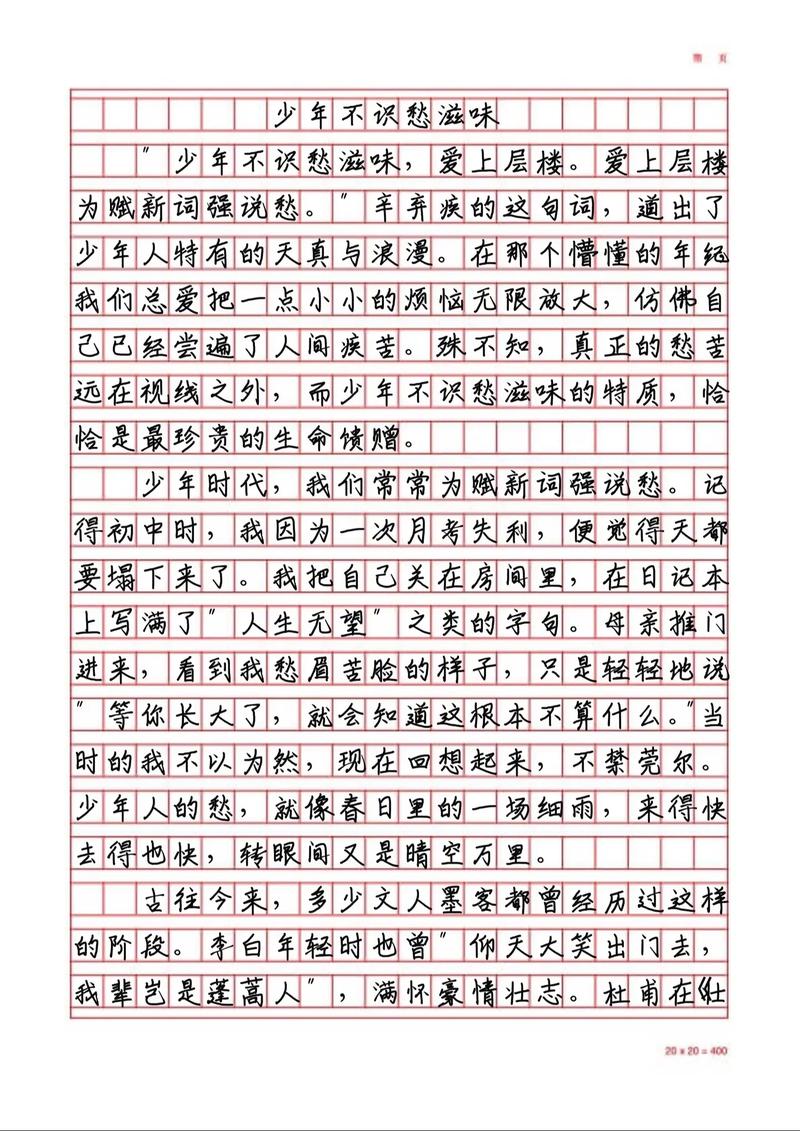 第 页
少年不识愁滋味
"少年不识愁滋味，爱上层楼。爱上层楼
为赋新词强说愁。"辛弃疾的这句词，道出了
少年人特有的天真与浪漫。在那个懵懂的年纪
我们总爱把一点小小的烦恼无限放大，仿佛自
己已经尝遍了人间疾苦。殊不知，真正的愁苦
远在视线之外，而少年不识愁滋味的特质，恰
恰是最珍贵的生命馈赠。
少年时代，我们常常为赋新词强说愁。记
得初中时，我因为一次月考失利，便觉得天都
要塌下来了。我把自己关在房间里，在日记本
上写满了"人生无望"之类的字句。母亲推门
进来，看到我愁眉苦脸的样子，只是轻轻地说
"等你长大了，就会知道这根本不算什么。"当
时的我不以为然，现在回想起来，不禁莞尔。
少年人的愁，就像春日里的一场细雨，来得快
去得也快，转眼间又是晴空万里。
古往今来，多少文人墨客都曾经历过这样
的阶段。李白年轻时也曾"仰天大笑出门去，
我辈岂是蓬蒿人"，满怀豪情壮志。杜甫在《壮
20×20=400